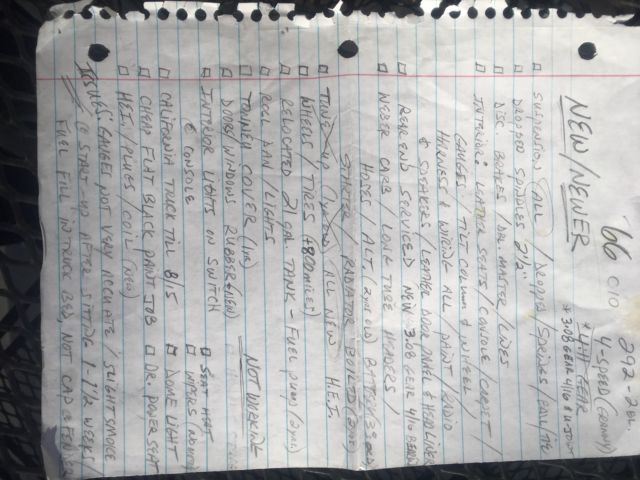 '66 C10 292-250.
4-SPEED (GRANNY)
* 4TH GEAR
* 3.08 GEAR 4/10 E U-JOINT
NEW/NEWER
☐ SUSPENSION (ALL) / NEOPRO / SPRINGS / BALL/TIE
☐ DROPPED SPINDLES 2 1/2"
☐ DISC BRAKES / DAL MASTER / LINES
☐ INTERIOR: LEATHER SEATS / CONSOLE / CARPET /
GAUGES / TILT COLUMN & WHEEL /
HARNESS & WIRING ALL / PAINT / RADIO
& SPEAKERS / LEATHER DOOR PANEL & HEADLINER
☐ REAR END SERVICED NEW 3.08 GEAR 4/10
☐ WEBER CARB / LONG TUBE HEADERS /
HOSES / ALT. (2 YRS OLD) BATTERY
STARTER / RADIATOR BUILT (2 YRS)
☐ TUNE-UP ALL NEW H.E.I.
☐ WHEELS / TIRES (+800 MILES)
☐ RELOCATED 21 GAL TANK - FUEL PUMP (2 YRS)
☐ ROLL PAN / LIGHTS
☐ TONNEAU COVER
☐ DOORS/WINDOWS RUBBER (NEW)
NOT WORKING
☐ INTERIOR LIGHTS ON SWITCH
& CONSOLE
☐ SEAT HEAT
☐ WIPERS
☐ CALIFORNIA TRUCK TILL 8/15
☐ DOME LIGHT
☐ CHEAP FLAT BLACK PAINT JOB
☐ DR. POWER SEAT
☐ H.E.I. / PLUGS / COIL (NEW)
ISSUES: GAUGES NOT VERY ACCURATE / SLIGHT SMOKE
@ START-UP AFTER SITTING 1-1 1/2 WEEKS /
FUEL FILL IN TRUCK BED, NOT CAP @ FENDER